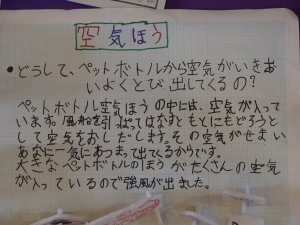 空気ほう
•どうして、ペットボトルから空気がいきお
いよくとび出してくるの?
ペットボトル空気ほうの中には、空気が入って
います。風船を引っぱってはなすともとにもどろうと
して空気をおしだします。その空気がせまい
あなに一気にあつまって出てくるからです。
大きなペットボトルのほうがたくさんの空気
が入っているので強風が出ました。